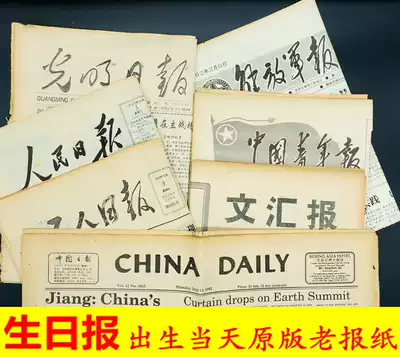 光明日报
GUANGMING
解放军报
人民日报
中国青年报
工人日报
文汇报
中国日报
CHINA DAILY
BEIJING ASIA HOTEL
Jiang: China's
Curtain drops on Earth Summit
生日报 出生当天原版老报纸